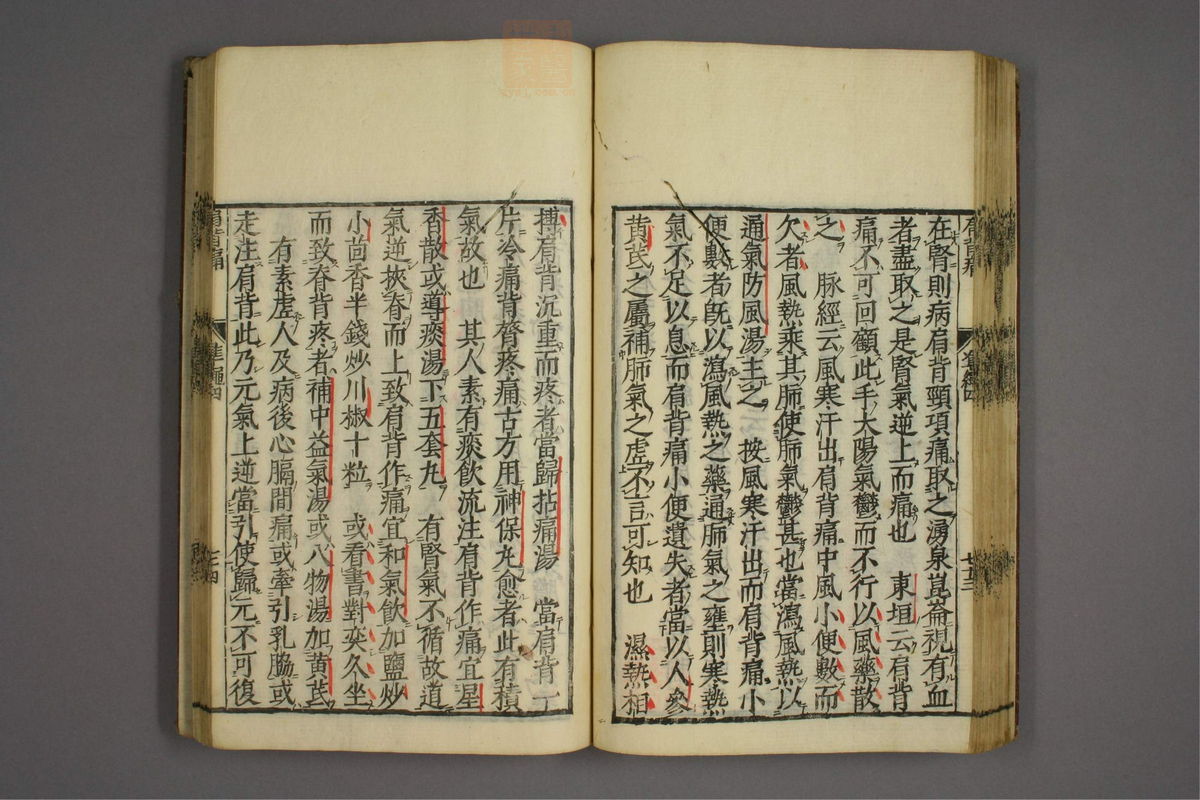 在腎則病肩背頸項痛取之湧泉崑崙視有血
者盡取之是腎氣逆上而痛也　東垣云肩背
痛不可回顧此手太陽氣鬱而不行以風藥散
之　脉經云風寒汗出肩背痛中風小便數而
欠者風熱乘其肺使肺氣鬱甚也當瀉風熱以
通氣防風湯主之　按風寒汗出而肩背痛小
便數者既以瀉風熱之藥通肺氣之壅則寒熱
氣不足以息而肩背痛小便遺失者當以人參
黃芪之屬補肺氣之虛不言可知也　濕熱相
搏肩背沉重而疼者當歸拈痛湯　當肩背一
片冷痛背膂疼痛古方用神保丸愈者此有積
氣故也　其人素有痰飲流注肩背作痛宜星
香散或導痰湯下五套丸　有腎氣不循故道
氣逆挾脊而上致肩背作痛宜和氣飲加鹽炒
小茴香半錢炒川椒十粒　或看書對奕久坐
而致脊背疼者補中益氣湯或八物湯加黃芪
有素虛人及病後心膈間痛或牽引乳脇或
走注肩背此乃元氣上逆當引使歸元不可復
肩背痛
準繩四
七十四